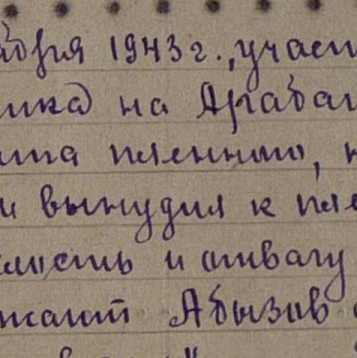 ября 1943 г., участ
ика на Араба
ита пленными,
и вынудил к пле
лость и отвагу
жант Абызов